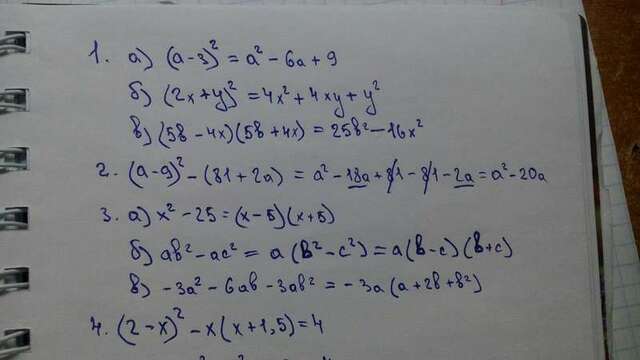 1. а) (a-3)² = a² - 6a + 9
б) (2x+y)² = 4x² + 4xy + y²
в) (5b - 4x)(5b + 4x) = 25b² - 16x²
2. (a-9)² - (81 + 2a) = a² - 18a + 81 - 81 - 2a = a² - 20a
3. а) x² - 25 = (x-5)(x+5)
б) ab² - ac² = a(b² - c²) = a(b-c)(b+c)
в) -3a² - 6ab - 3ab² = -3a(a + 2b + b²)
4. (2-x)² - x(x+1,5) = 4